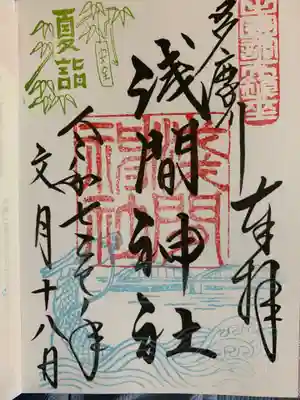 奉拝
多摩川
浅間神社
浅間神社
夏詣
令和七年
文月十八日